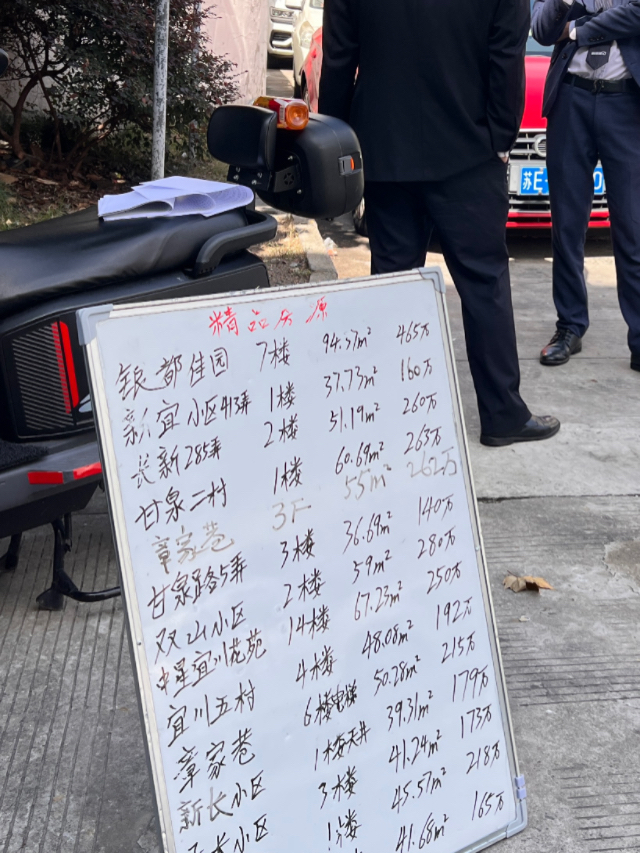 精品房源
银都佳园 7楼 94.57m² 465万
新宜小区413弄 1楼 37.73m² 160万
长新285弄 2楼 51.19m² 260万
甘泉二村 1楼 60.69m² 263万
章家巷 3F 55m² 262万
甘泉路5弄 3楼 36.69m² 140万
双山小区 2楼 59m² 280万
中星宜川苑 14楼 67.23m² 250万
宜川五村 4楼 48.08m² 192万
章家巷 6楼电梯 50.28m² 215万
新长小区 1楼天井 39.31m² 179万
长小区 3楼 41.24m² 173万
1楼 45.57m² 218万
41.68m² 165万
苏E